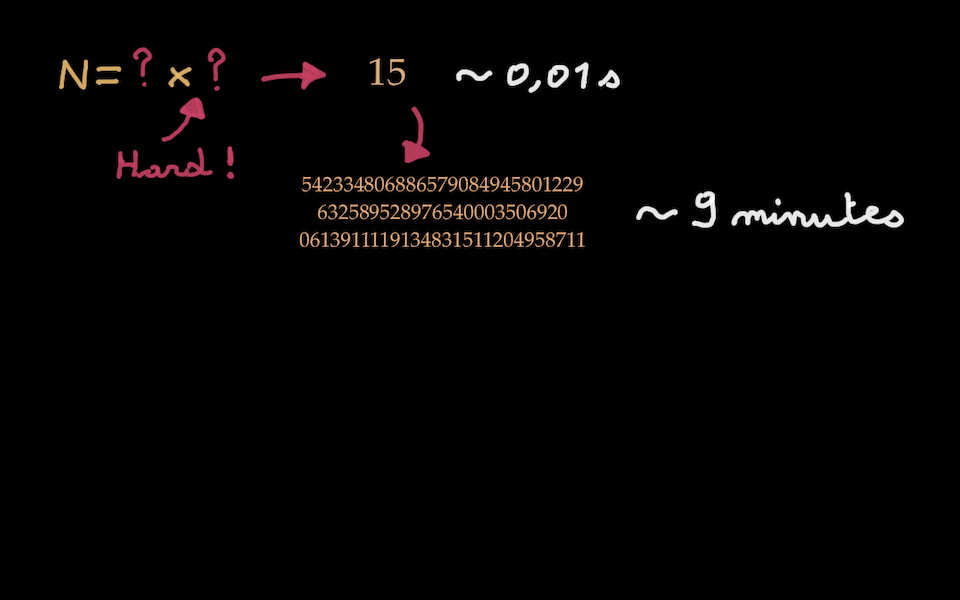 N = ? x ? → 15 ~ 0,01 s
Hard !
542334806886579084945801229
632589528976540003506920
0613911119134831511204958711
~ 9 minutes